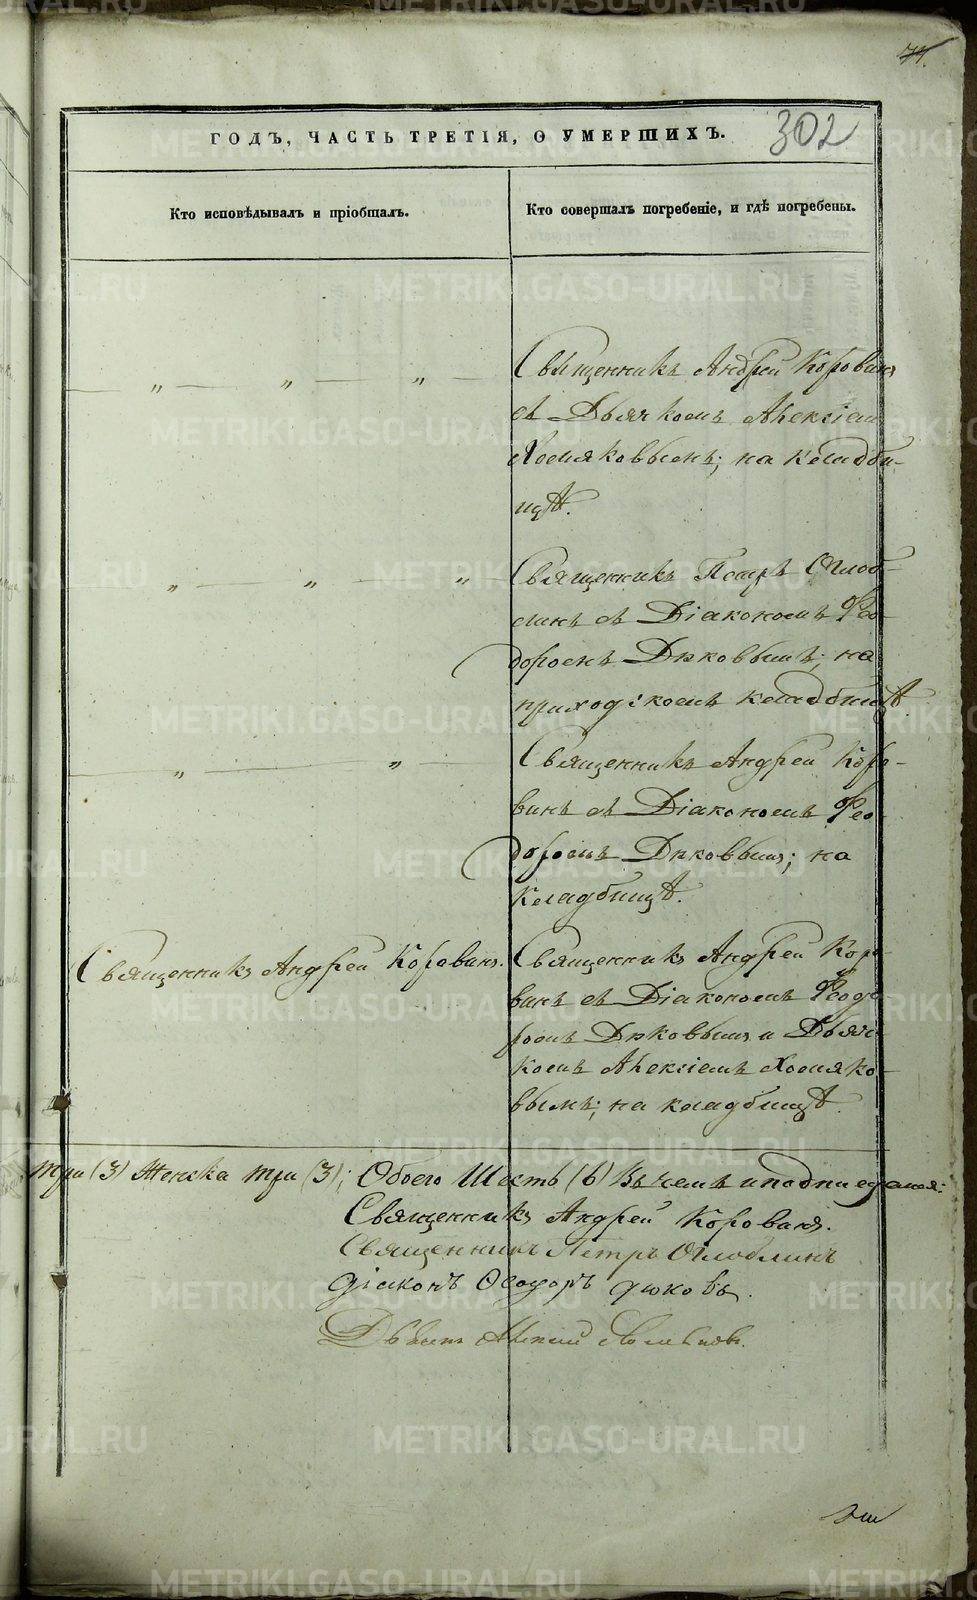 74.
302
ГОДЪ, ЧАСТЬ ТРЕТІЯ, О УМЕРШИХЪ.
Кто исповѣдывалъ и пріобщалъ.
Кто совершалъ погребеніе, и гдѣ погребены.
Священникъ Андрей Коровинъ
съ Дьячкомъ Алексіемъ
Хомяковымъ; на кладби-
щѣ.
Священникъ Петръ Оглоб-
линъ съ Діакономъ Ѳео-
доромъ Дюковымъ; на
приходскомъ кладбищѣ
Священникъ Андрей Коро-
винъ съ Діакономъ Ѳео-
доромъ Дюковымъ; на
кладбищѣ.
Священникъ Андрей Коровинъ.
Священникъ Андрей Коро-
винъ съ Діакономъ Ѳеодо-
ромъ Дюковымъ и Дьяч-
комъ Алексіемъ Хомяко-
вымъ; на кладбищѣ.
три (3) Женска три (3); Обоего Шесть (6) Въ чемъ и подписуемся:
Священникъ Андрей Коровинъ.
Священникъ Петръ Оглоблинъ
Діаконъ Ѳеодоръ Дюковъ.
Алексій Хомяковъ.
METRIKI.GASO-URAL.RU